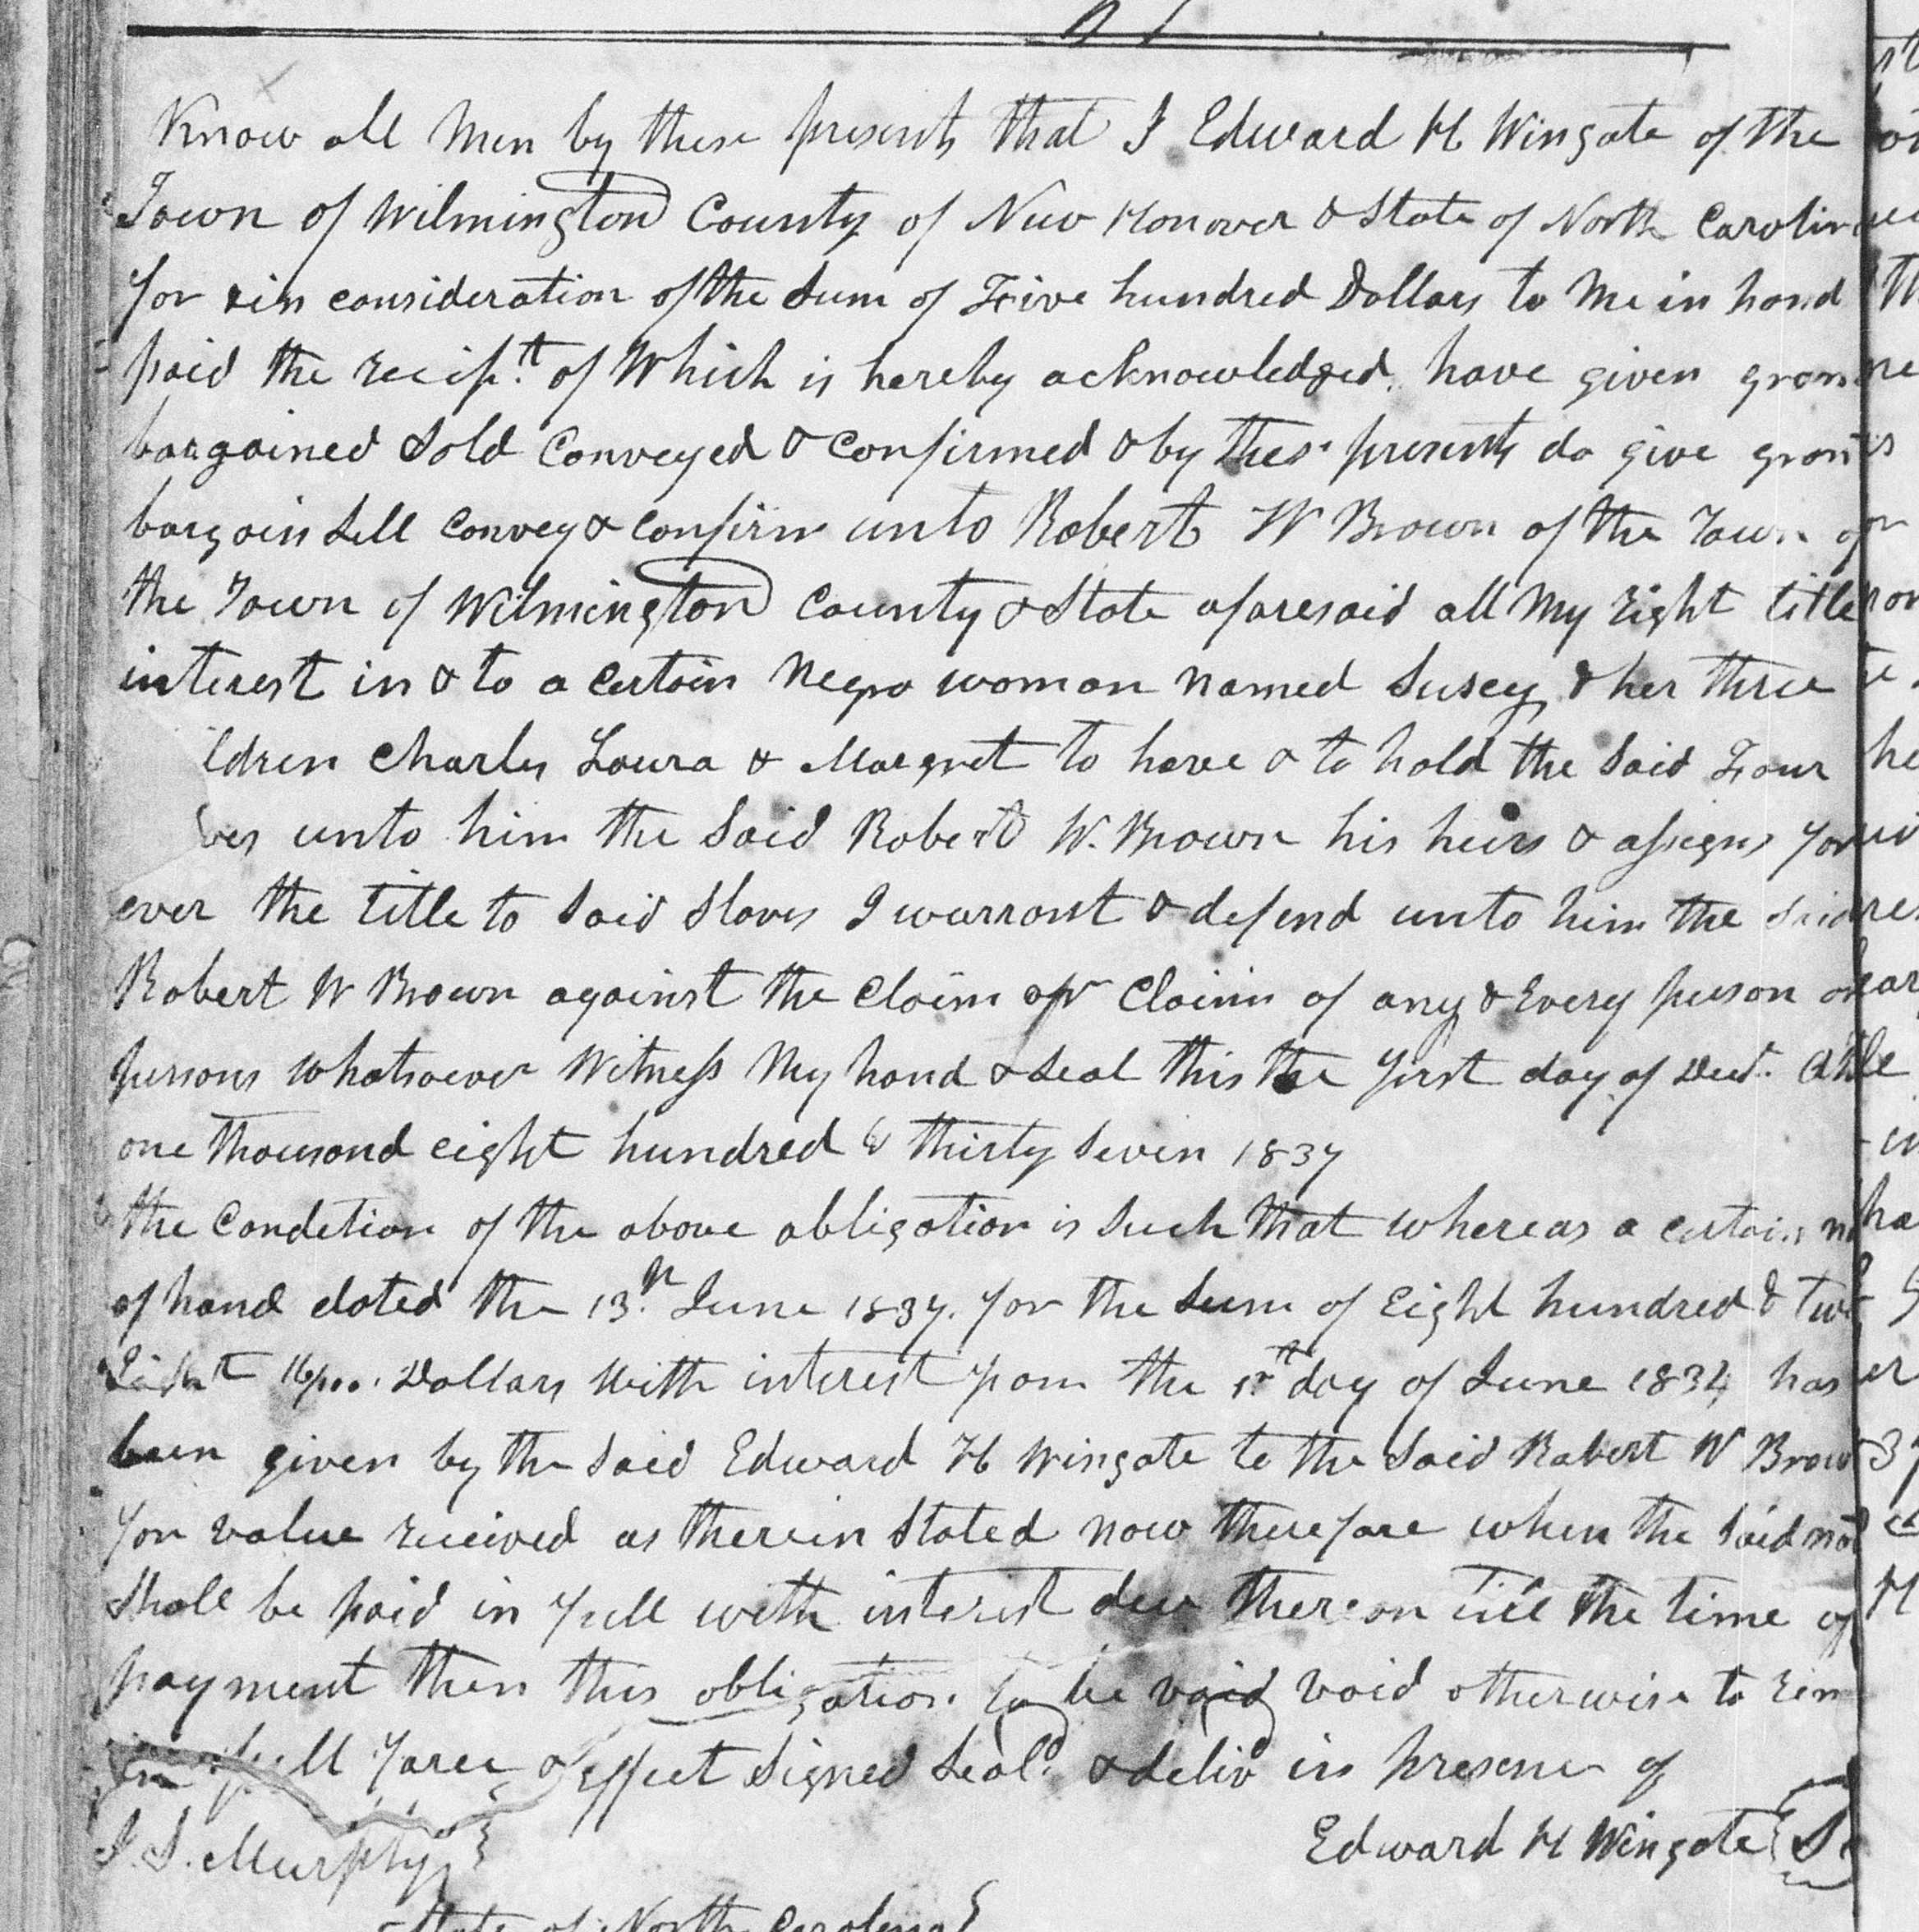 Know all Men by these presents that I Edward H Wingate of the
Town of Wilmington County of New Hanover & State of North Carolin
for & in consideration of the Sum of Five hundred Dollars to Me in hand
paid the recipt of Which is hereby acknowledged have given gran
bargained Sold Conveyed & Confirmed & by these presents do give grant
bargain Sell Convey & Confirm unto Robert W Brown of the Town of
the Town of Wilmington County & State aforesaid all My right title
interest in & to a certain Negro woman named Susey & her three
ldren Charles Laura & Margret to have & to hold the Said Four
ves unto him the Said Robert W. Brown his heirs & assigns for
ever the title to Said Slaves I warrant & defend unto him the Said
Robert W Brown against the Claim or Claim of any & Every person or
persons whatsoever Witness My hand & Seal this the first day of Dect.
one thousand eight hundred & thirty Seven 1837
the Condetion of the above obligation is Such that whereas a certain
of hand dated the 13th June 1837. for the Sum of Eight hundred &
Eight 16/100. Dollars With interest from the 1st day of June 1834 has
been given by the Said Edward H Wingate to the Said Robert W Brow
for value received as therein Stated now therefore when the Said not
Shall be paid in full with interest due thereon till the time of
payment then this obligation to be void void otherwise to rem
in full force & effect Signed Seald. & delivd in presence of
J. S. Murphy Edward H Wingate
State of North Carolina